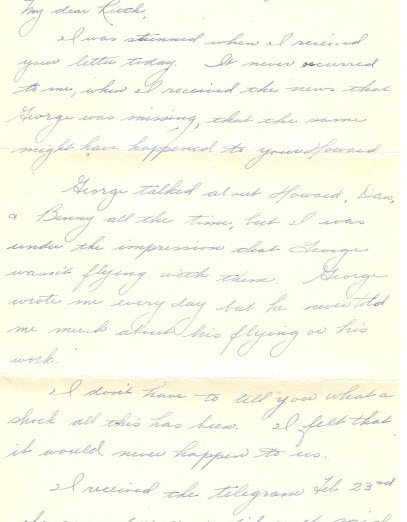 My dear Ruth,
I was stunned when I received
your letter today. It never occurred
to me, when I received the news that
George was missing, that the same
might have happened to your Howard.
George talked about Howard, Dan,
& Benny all the time, but I was
under the impression that George
wasn't flying with them. George
wrote me every day but he never told
me much about his flying or his
work.
I don't have to tell you what a
shock all this has been. I felt that
it would never happen to us.
I received the telegram Feb 23rd